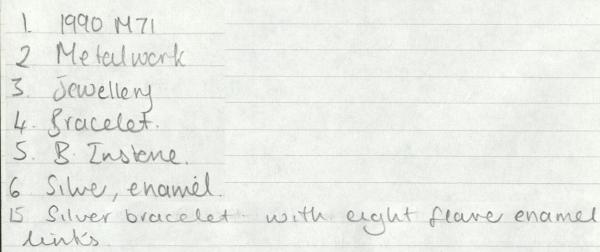 1. 1990 M71
2 Metalwork
3. Jewellery
4. Bracelet.
5. B. Instone.
6 Silver, enamel.
15 Silver bracelet with eight enamel
links.